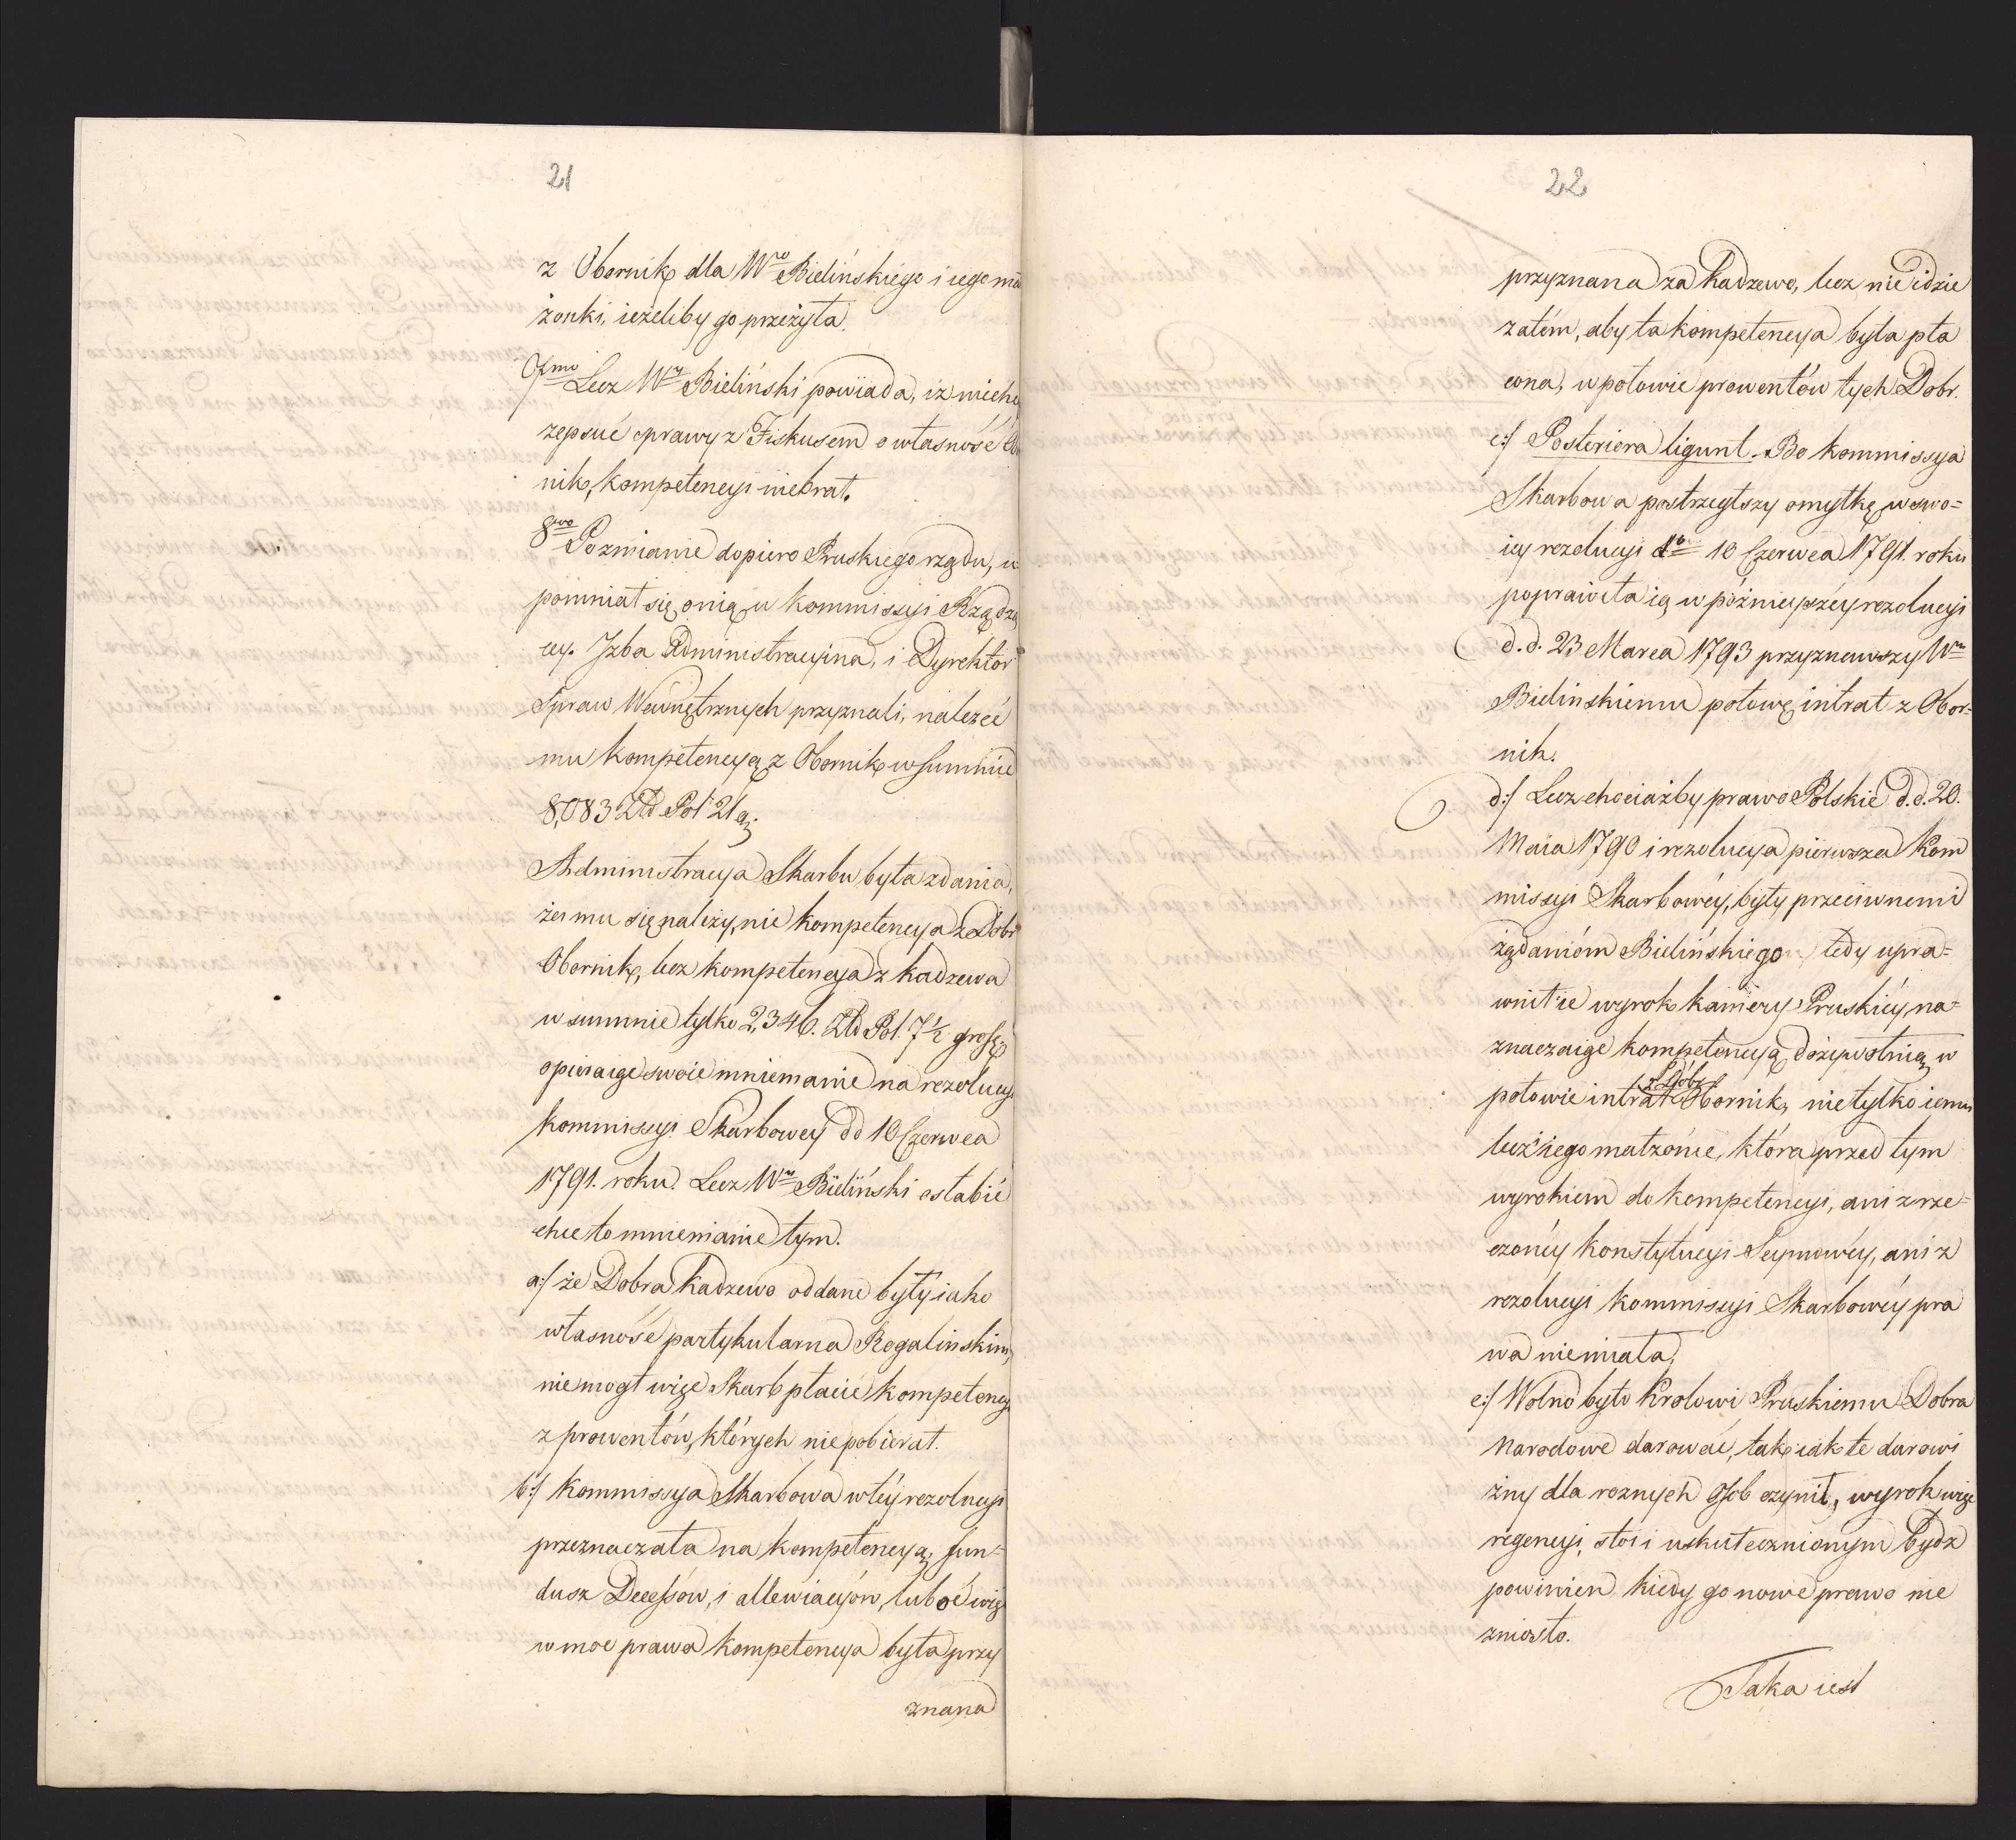 21
z Obornik dla Wo Bielińskiego i iego mał
żonki, ieżeliby go przeżyła.
7mo Lecz Wy Bieliński powiada, iż niechc
zepsuć sprawy z Fiskusem o własność Obor
nik, kompetencyi niebrał.
8vo Po zmianie dopiero Pruskiego rządu, u
pomniał się o nią u Kommissyi Rządzą
cey. Izba Administracyina, i Dyrektor
Spraw Wewnętrznych przyznali, należeć
mu kompetencyą z Obornik w summie
8,083 Zło Pol 21 g.
Administracya Skarbu była zdania,
że mu się należy, nie kompetencya z Dobr
Obornik, lecz kompetencya z Kadzewa
w summie tylko 2,346. Zło Pol. 7½ grosz,
opieraiąc swoie mniemanie na rezolucyi
Kommissyi Skarbowey dd 10 Czerwca
1791. roku. Lecz Wny Bieliński osłabić
chce to mniemanie tym.
a:/ że Dobra Kadzewo oddane były iako
własność partykularna Rogalinskim,
niemogł więc Skarb płacić kompetency
z prowentów, których niepobierał.
b:/ Kommissya Skarbowa w téy rezolucyi
przeznaczała na kompetencyą, fun=
dusz Decessów, i allewiacyów, lubo więc
w moc prawa kompetencya była przy
znana
22
przyznana za Kadzewo, lecz nie idzie
zatém, aby ta kompetencya była pła
cona, w połowie prowentów tych Dobr.
c:/ Posteriora ligunt. Bo Kommissya
Skarbowa postrzegłszy omyłkę w swo=
iey rezolucyi do 10 Czerwca 1791. roku
poprawiła ią w póżnieyszéy rezolucyi
d. d. 23 Marca 1793 przyznawszy Wmu
Bielinskiemu połowę intrat z Obor=
nik.
d:/ Lecz chociażby prawo Polskie d. d. 20.
Maia 1790 i rezolucya pierwsza Kom
missyi Skarbowéy, były przeciwnemi
żądaniom Bielińskiego, tedy upra=
wnił ie wyrok kamery Pruskiéy na=
znaczaiąc kompetencyą dożywotnią w
połowie intrat z Dobr Obornik, nietylko iemu
lecz iego małżonce, która przed tym
wyrokiem do kompetencyi, ani z rze=
czonéy Konstytucyi Seymowéy, ani z
rezolucyi Kommissyi Skarbowéy pra
wa niemiała,
e:/ Wolno było Krolowi Pruskiemu Dobra
Narodowe darować, tak iak te darowi
zny dla roznych osob czynił, wyrok więc
regencyi, stoi i uskutecznionym bydz
powinien kiedy go nowe prawo nie
zniosło.
Taka iest